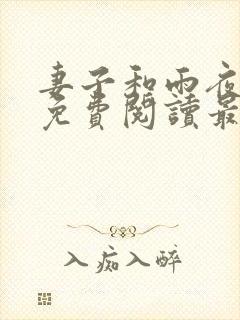 妻子和雨夜
免費閱讀最
入痴入醉